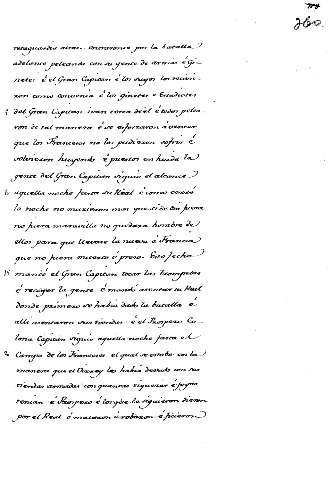 260
retaguardia atras. Entraronse por la batalla
adelante peleando con su gente de armas é gi-
netes: é el Gran Capitan é los suyos los recivie-
ron como convenia é los ginetes é Estradiotes
5 del Gran Capitan ivan cerca de él é todos pelea-
ron de tal manera é se esforzaron a vencer
que los Franceses no los pudieron sofrir é
volvieron huyendo é puestos en huida la
gente del Gran Capitan siguió el alcance
10 aquella noche fasta su Real é como cerró
la noche no murieron mas que si de dia fuera
no fuera maravilla no quedara hombre de
ellos para que llevase la nueva á Francia
que no fuera muerto ó preso. Esto fecho
15 mandó el Gran Capitan tocar las trompetas
é recoger la gente é mandó asentar su Real
donde primero se habia dado la batalla é
alli asentaron sus tiendas: é el Prospero Co-
lona Capitan siguió aquella noche fasta el
20 Campo de los Franceses el qual se estaba en la
manera que el Visorey los habia dexado con sus
tiendas armadas con quantas riquezas é joyas
tenian é Prospero é los que le siguieron dieron
por el Real é mataron é robaron é ficieron